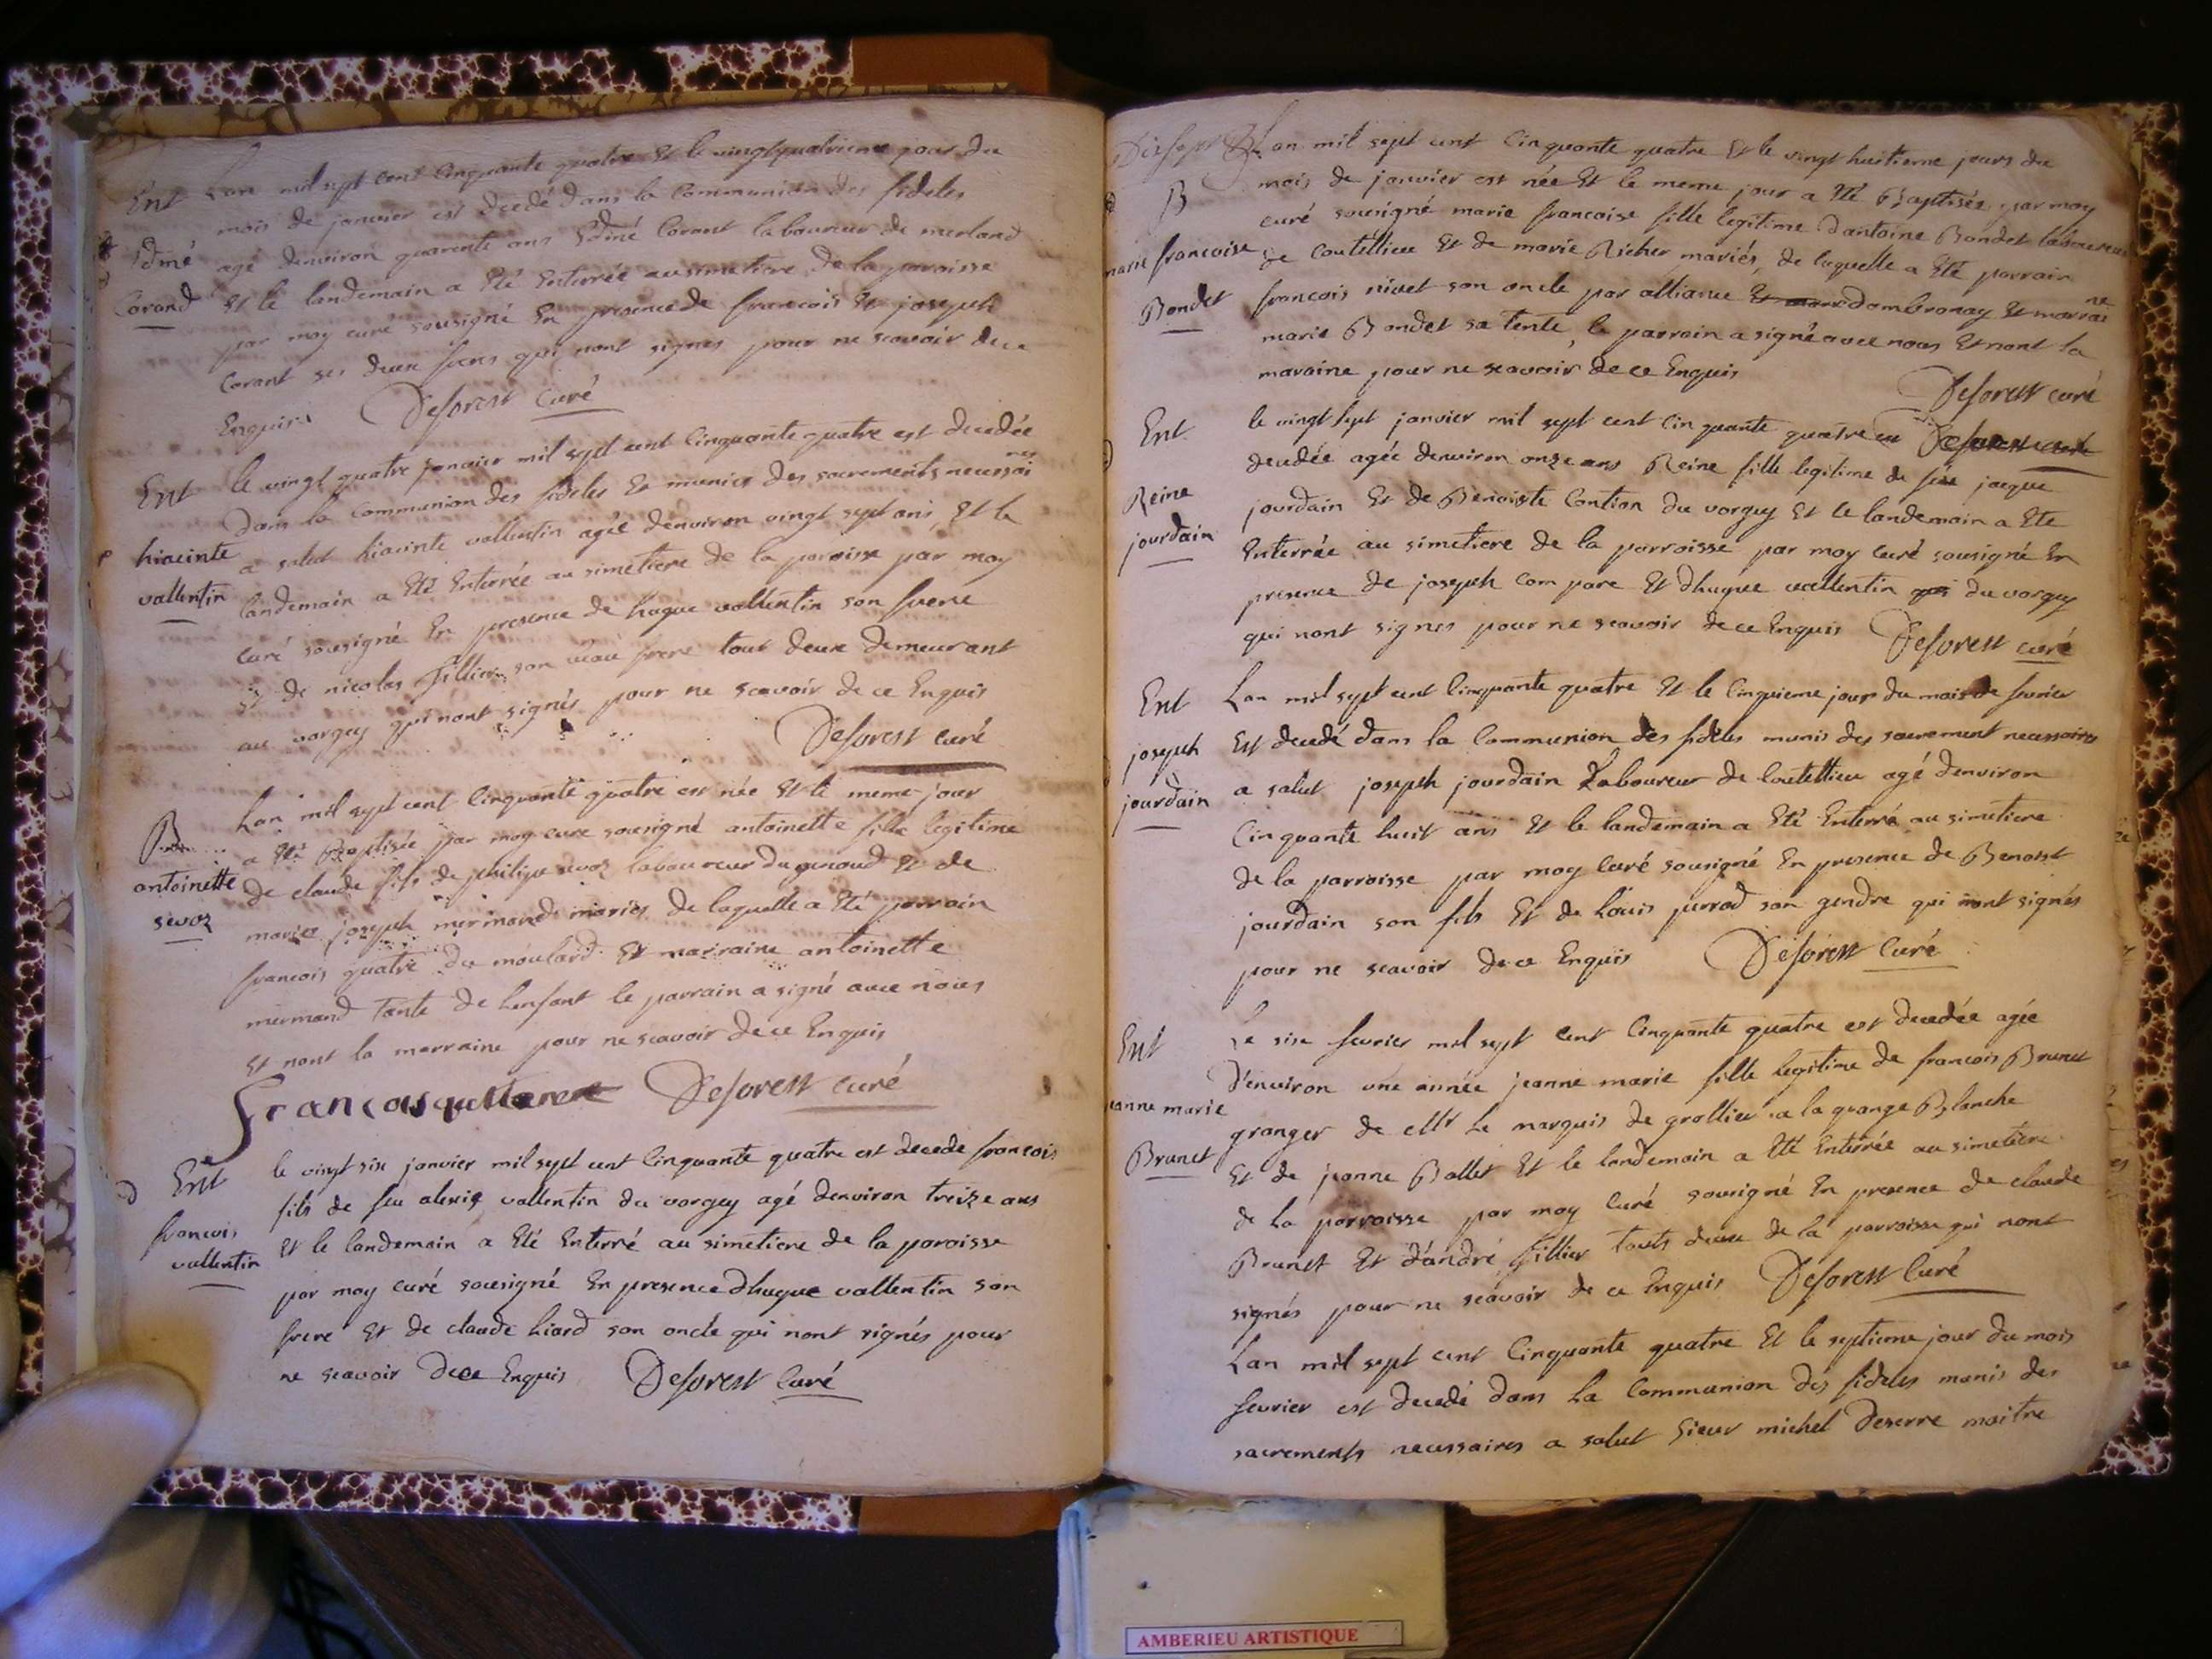 Ent
Edmé
Corand
Lan mil sept cent Cinquante quatre Et le vingt quatrieme jour du
mois de janvier est decedé dans la Communion des fideles
agé denviron quarente ans Edmé Corant laboureur de merland
Et le landemain a Eté Enterrée au simetiere de la paroisse
par moy curé sousigné En presence de francois Et joseph
Corant ses deux freres qui nont signés pour ne scavoir de ce
Enquis Deforest Curé
Ent
hiacinte
vallentin
le vingt quatre janvier mil sept cent Cinquante quatre est decedée
dans la Communion des fideles Et munies des sacrements necessaires
a salut hiacinte vallentin agée denviron vingt sept ans, Et le
landemain a Eté Enterrée au simetiere de la paroisse par moy
Curé sousigné En presence de hugue vallentin son frere
Et de nicolas fillier son beau frere tout deux demeurant
au vorgey qui nont signés pour ne scavoir de ce Enquis
Deforest curé
B
antoinette
sevoz
Lan mil sept cent Cinquante quatre est née Et le meme jour
a Eté Baptisée par moy cure sousigné antoinette fille legitime
de claude fils de philipe sevoz laboureur du genoud Et de
marie joseph mermand mariés, de laquelle a Eté parrain
francois quatre du moulard Et marraine antoinette
mermand tante de lenfant le parrain a signé avec nous
Et nont la marraine pour ne scavoir de ce Enquis
Deforest curé
Ent
francois
vallentin
le vingt six janvier mil sept cent Cinquante quatre est decede francois
fils de feu alexis vallentin du vorgey agé denviron treize ans
Et le landemain a Eté Enterré au simetiere de la paroisse
par moy curé sousigné En presence dhugue vallentin son
frere Et de claude hiard son oncle qui nont signés pour
ne scavoir de ce Enquis Deforest Curé
Dixsept
B
marie francoise
Bondet
Lan mil sept cent Cinquante quatre Et le vingt huitieme jours du
mois de janvier est née Et le meme jour a Eté Baptisée par moy
curé sousigné marie francoise fille legitime dantoine Bondet laboureur
de Coutellieu Et de marie Richer mariés, de laquelle a Eté parrain
francois nivet son oncle par alliance dambronay Et marraine
marie Bondet sa tente, le parrain a signé avec nous Et nont la
maraine pour ne scavoir de ce Enquis
Deforest curé
Ent
Reine
jourdain
le vingt sept janvier mil sept cent Cinquante quatre est Deforest curé
decedée agée denviron onze ans Reine fille legitime de feu jacque
jourdain Et de Benoiste Contion du vorgey Et le landemain a Eté
Enterrée au simetiere de la parroisse par moy curé sousigné En
presence de joseph Compare Et dhugue vallentin qui du vorgey
qui nont signes pour ne scavoir de ce Enquis Deforest curé
Ent
joseph
jourdain
Lan mil sept cent Cinquante quatre Et le Cinquieme jour du mois de fevrier
Est decedé dans la Communion des fideles munis des sacrement necessaires
a salut joseph jourdain Laboureur de Coutellieu agé denviron
Cinquante huit ans Et le landemain a Eté Enterré au simetiere
de la parroisse par moy Curé sousigné En presence de Benoist
jourdain son fils Et de Louis perrod son gendre qui nont signés
pour ne scavoir de ce Enquis Deforest Curé
Ent
jeanne marie
Brunet
Le six fevrier mil sept cent Cinquante quatre est decedée agée
Denviron une année jeanne marie fille legitime de francois Brunet
granger de Mr Le marquis de grollier a la grange Blanche
Et de jeanne Ballet Et le landemain a Eté Enterrée au simetiere
de la parroisse par moy Curé sousigné En presence de claude
Brunet Et d'andré fillier touts deux de la parroisse qui nont
signés pour ne scavoir de ce Enquis Deforest Curé
Lan mil sept cent Cinquante quatre Et le septieme jour du mois
fevrier est decedé dans La Communion des fideles munis des
sacrements necessaires a salut Sieur michel Deserre maitre
AMBERIEU ARTISTIQUE